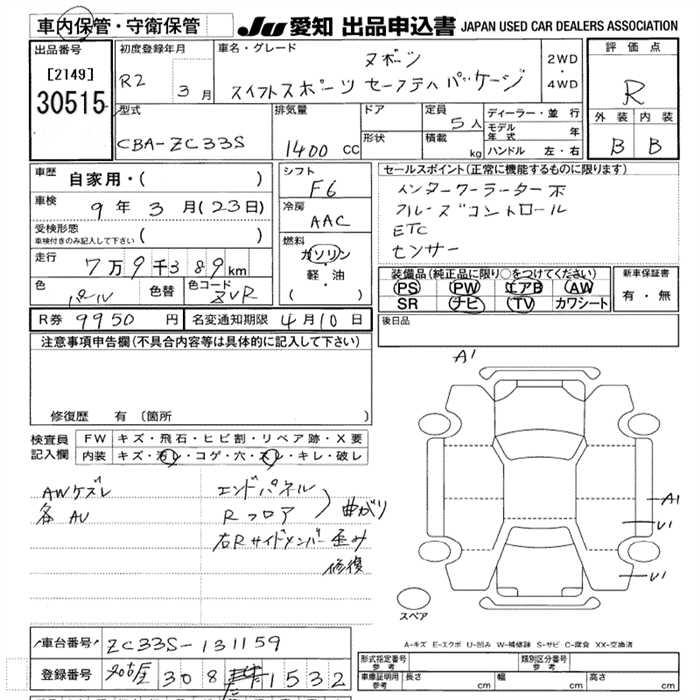 車内保管・守衛保管
JU 愛知 出品申込書 JAPAN USED CAR DEALERS ASSOCIATION
出品番号
[2149]
30515
初度登録年月
R2 3月
車名・グレード
スポーツ
スイフトスポーツ セーフティパッケージ
2WD
・
4WD
評価点
R
外装 内装
B B
型式
CBA-ZC33S
排気量
1400 cc
ドア
形状
定員 5人
積載 kg
ディーラー・並行
モデル年式 年
ハンドル 左・右
車歴 自家用・( )
車検 9年3月(23日)
受検形態
車検付きのみ記入して下さい ( )
走行 7万9千389km
色 パール 色替
色コード ZVR
シフト
F6
冷房
AAC
燃料
ガソリン
軽・油
( )
セールスポイント(正常に機能するものに限ります)
インタークーラーター
クルーズコントロール
ETC
センサー
装備品(純正品に限り○をつけてください)
PS PW エアB AW
SR ナビ TV カワシート
新車保証書
有・無
R券 9950円 名変通知期限 4月10日
後日品
注意事項申告欄(不具合内容等は具体的に記入して下さい)
修復歴 有 (箇所 )
検査員
記入欄
FW キズ・飛石・ヒビ割・リペア跡・X要
内装 キズ・汚レ・コゲ・穴・スレ・キレ・破レ
AWケズレ
各AU
エンドパネル
Rフロア
曲がり
右Rサイドメンバー歪み
修復
A1
A1
U1
U1
スペア
A-キズ E-エクボ U-凹み W-補修跡 S-サビ C-腐食 XX-交換済
車台番号 ZC33S-131159
登録番号 名古屋 308 1532
形式指定番号
参考
類別区分番号
参考
車庫証明用
参考
長さ cm 幅 cm 高さ cm